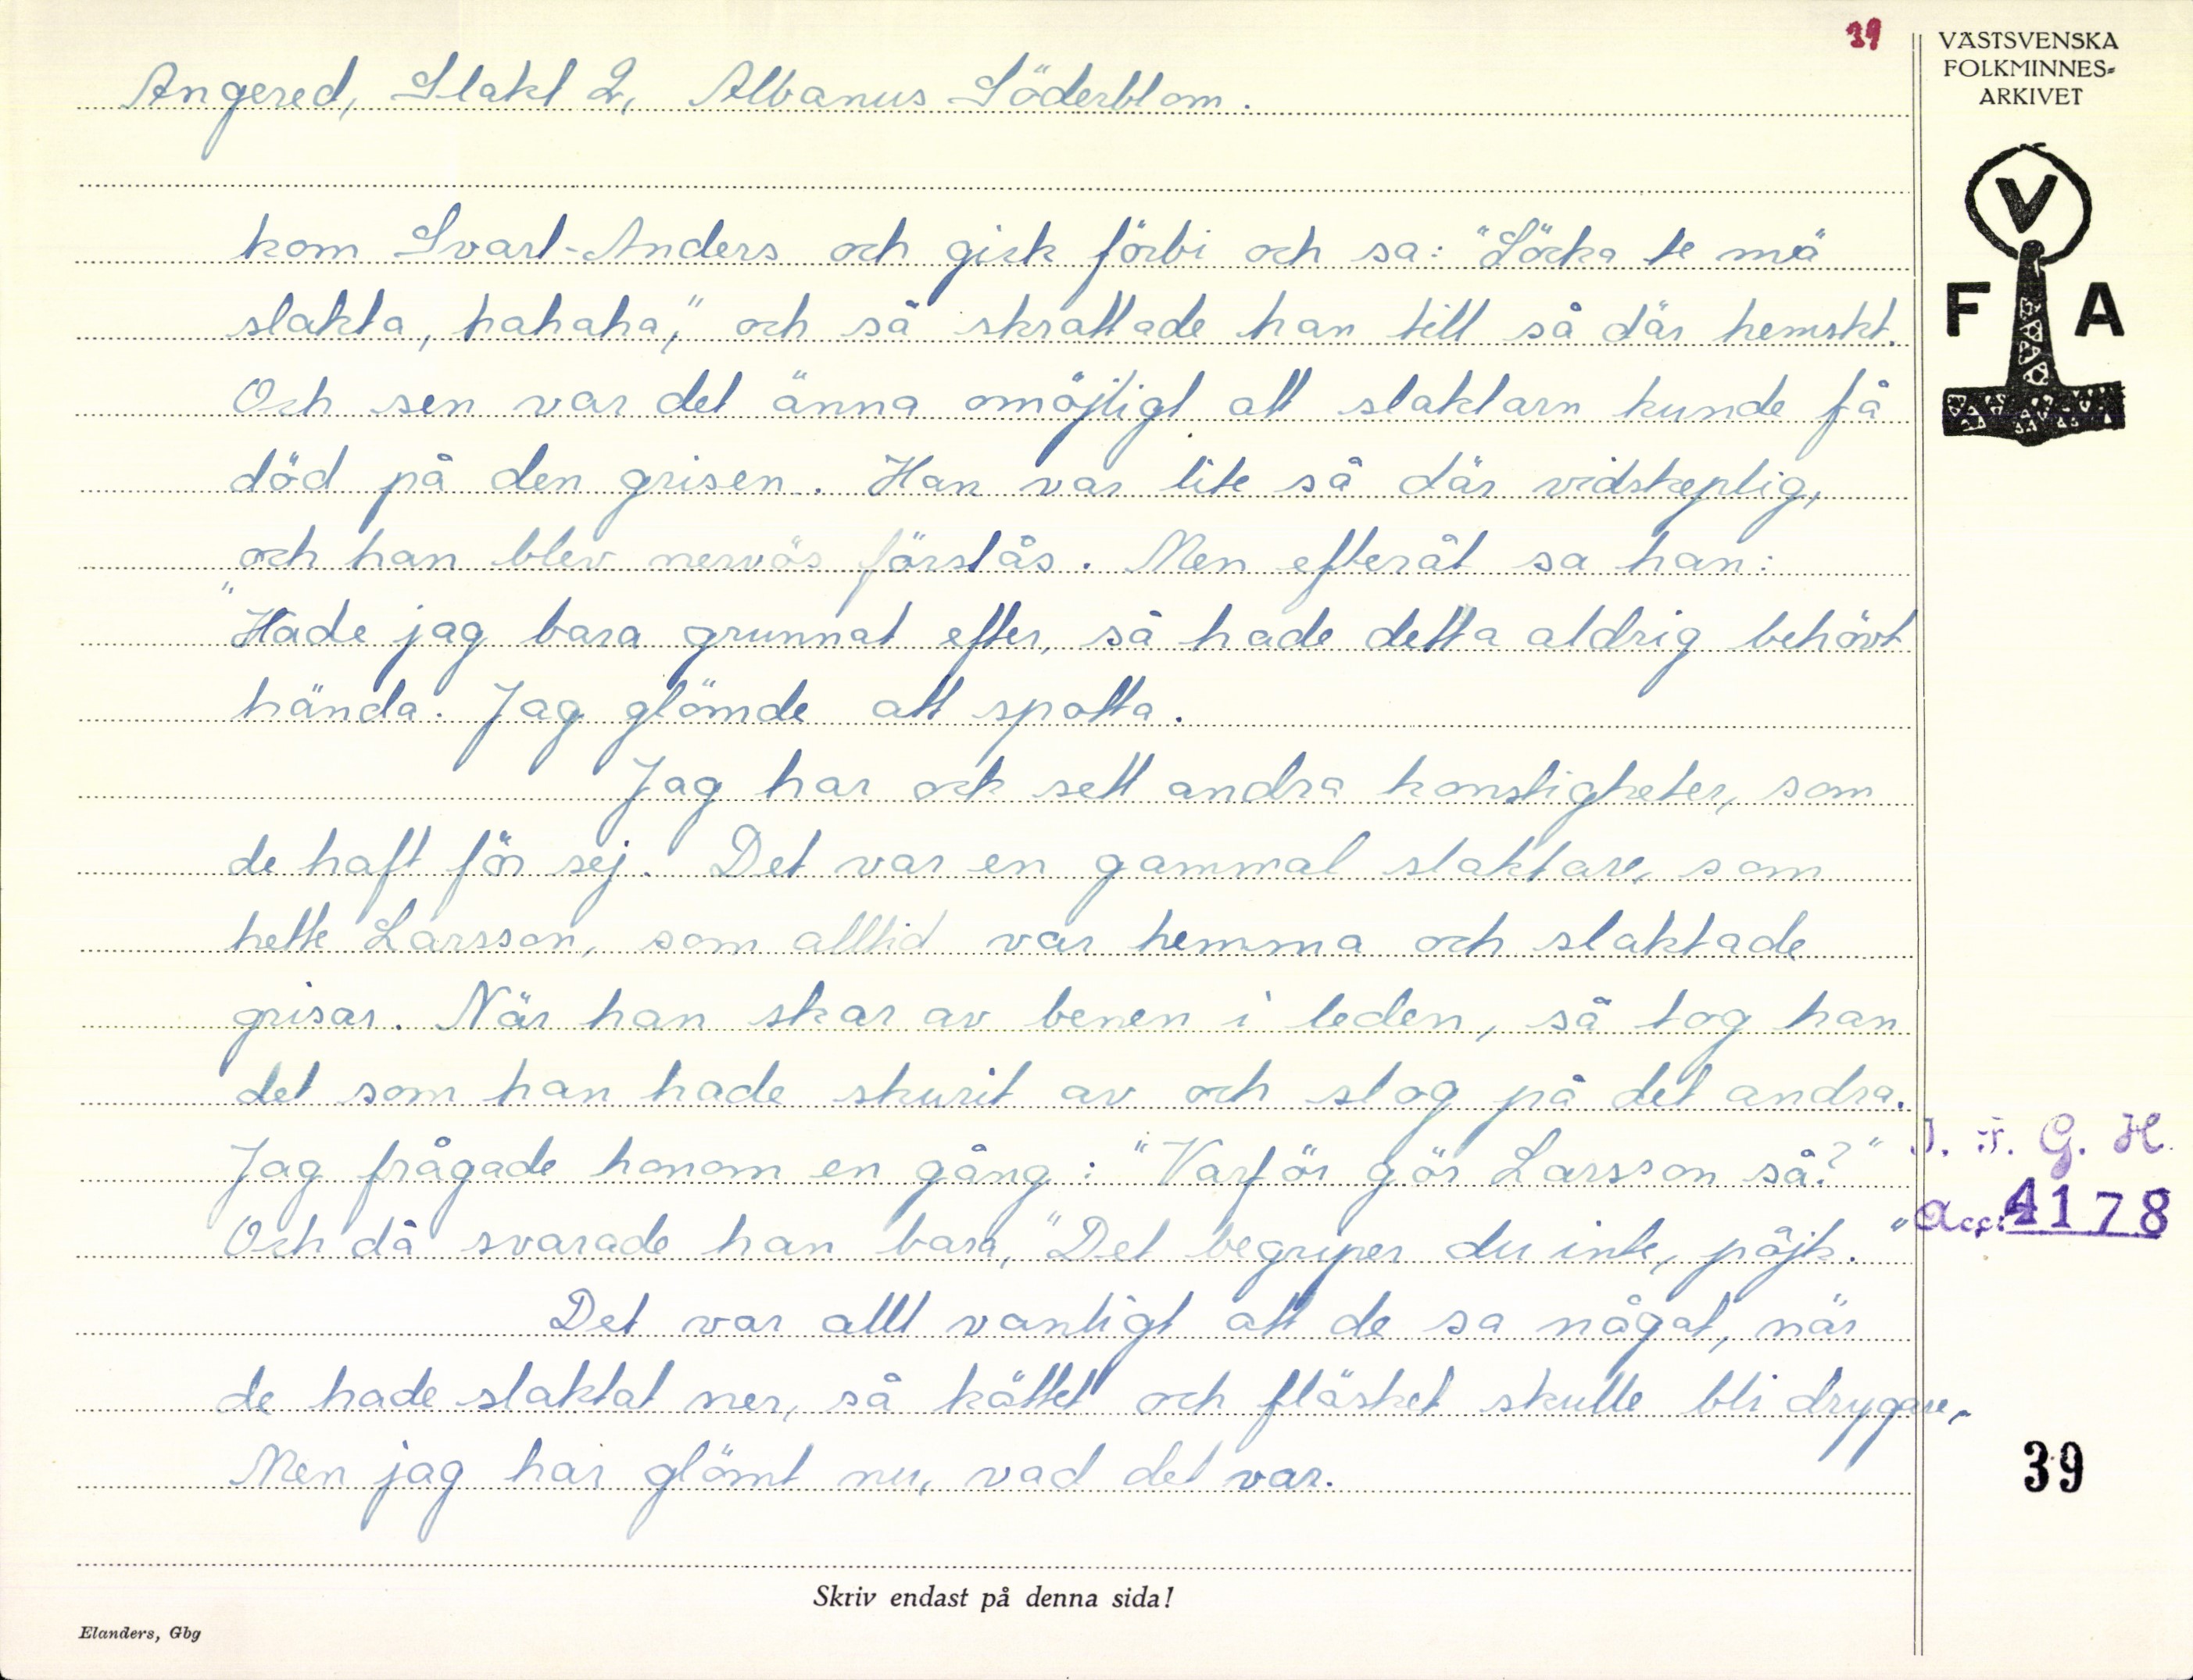 39
VÄSTSVENSKA
FOLKMINNES-
ARKIVET
V
F A
Angered, Slakt 2, Albanus Söderblom.
kom Svart-Anders och gick förbi och sa: "Löcka te mä
slakta, hahaha," och så skrattade han till så där hemskt.
Och sen var det änna omöjligt att slaktarn kunde få
död på den grisen. Han var lite så där vidskeplig,
och han blev nervös förstås. Men efteråt sa han:
"Hade jag bara grunnat efter, så hade detta aldrig behövt
hända. Jag glömde att spotta.
Jag har ock sett andra konstigheter, som
de haft för sej. Det var en gammal slaktare, som
hette Larsson, som alltid var hemma och slaktade
grisar. När han skar av benen i leden, så tog han
det som han hade skurit av och slog på det andra.
Jag frågade honom en gång: "Varför gör Larsson så?"
Och då svarade han bara, "Det begriper du inte, pöjk."
Det var allt vanligt att de sa något, när
de hade slaktat ner, så köttet och fläsket skulle bli drygare,
Men jag har glömt nu, vad det var.
I. F. G. H.
Acc: 4178
39
Skriv endast på denna sida!
Elanders, Gbg